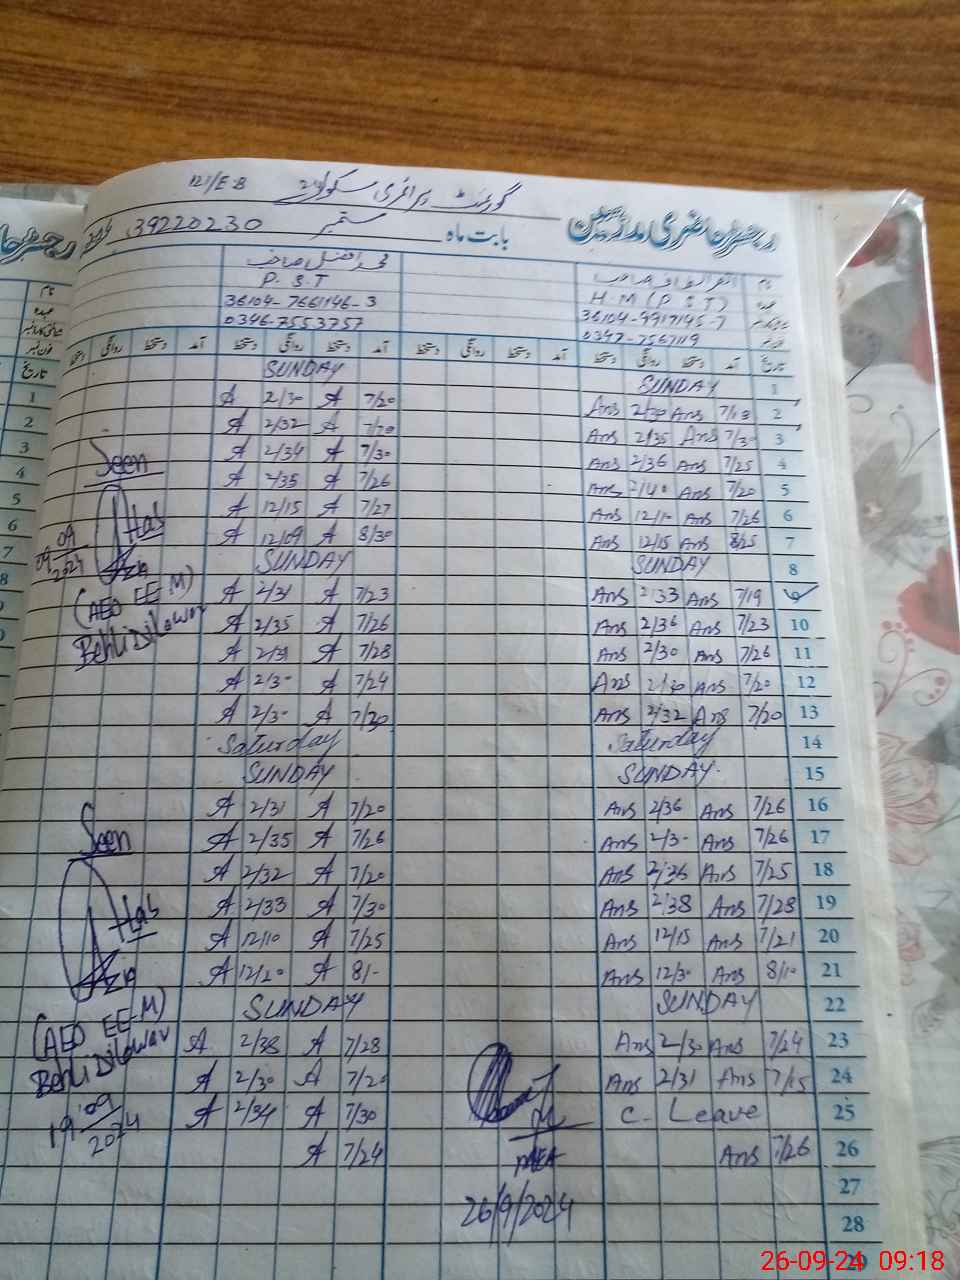 گورنمنٹ پرائمری سکول 121/E.B
رجسٹر حاضری مدرسین بابت ماہ ستمبر 39220230
محمد افضل صاحب
نام
P. S. T
H.M (P S T)
عہدہ
36104-7661146-3
36104-9917145-7
0346-7553757
0347-7567119
تاریخ آمد دستخط روانگی دستخط آمد دستخط روانگی دستخط آمد دستخط روانگی دستخط آمد دستخط روانگی دستخط
1 SUNDAY SUNDAY
2 7/13 Ans 2/30 Ans 7/20 A 2/30 A
3 7/30 Ans 2/35 Ans 7/20 A 2/32 A
4 7/25 Ans 2/36 Ans 7/30 A 2/34 A
5 7/20 Ans 2/40 Ans 7/26 A 2/35 A
6 7/26 Ans 12/10 Ans 7/27 A 12/15 A
7 8/25 Ans 12/15 Ans 8/30 A 12/09 A
8 SUNDAY SUNDAY
9 7/19 Ans 2/33 Ans 7/23 A 2/31 A
10 7/23 Ans 2/36 Ans 7/26 A 2/35 A
11 7/26 Ans 2/30 Ans 7/28 A 2/31 A
12 7/20 Ans 2/30 Ans 7/24 A 2/30 A
13 7/20 Ans 2/32 Ans 7/20 A 2/30 A
14 Saturday Saturday
15 SUNDAY SUNDAY
16 7/26 Ans 2/36 Ans 7/20 A 2/31 A
17 7/26 Ans 2/30 Ans 7/26 A 2/35 A
18 7/25 Ans 2/36 Ans 7/20 A 2/32 A
19 7/28 Ans 2/38 Ans 7/30 A 2/33 A
20 7/21 Ans 12/15 Ans 7/25 A 12/10 A
21 8/10 Ans 12/30 Ans 8/- A 12/20 A
22 SUNDAY SUNDAY
23 7/24 Ans 2/30 Ans 7/28 A 2/38 A
24 7/15 Ans 2/31 Ans 7/20 A 2/30 A
25 C. Leave 7/30 A 2/34 A
26 7/26 Ans 7/24 A
27
28
29
Seen
09/09/2024
(AEO EE-M)
Behli Dilawar
Seen
(AEO EE-M)
Behli Dilawar
19/09/2024
MEA
26/9/2024
رجسٹر حا
نام
عہدہ
تاریخ
1
2
3
4
5
6
7
8
26-09-24 09:18